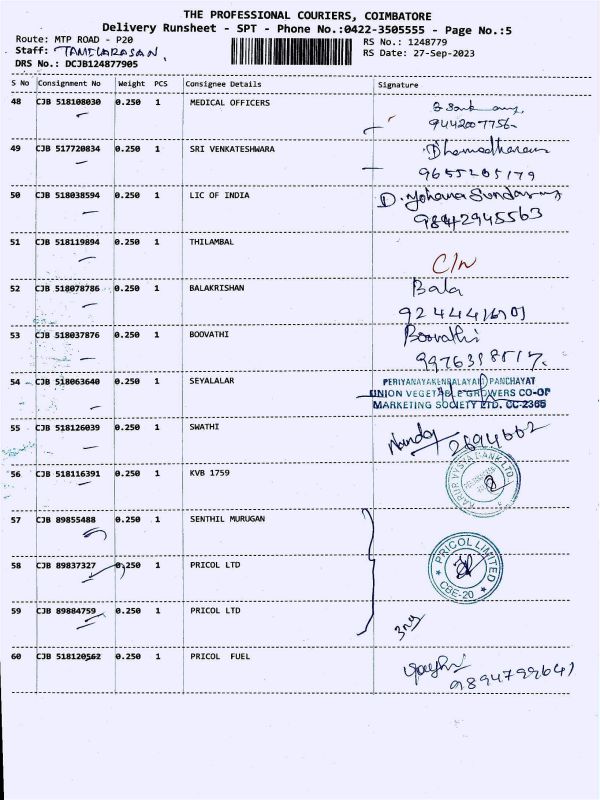 THE PROFESSIONAL COURIERS, COIMBATORE
Delivery Runsheet - SPT - Phone No.:0422-3505555 - Page No.:5
Route: MTP ROAD - P20 RS No.: 1248779
Staff: TAMILARASAN RS Date: 27-Sep-2023
DRS No.: DCJB124877905
S No Consignment No Weight PCS Consignee Details Signature
48 CJB 518108030 0.250 1 MEDICAL OFFICERS
9442007756
49 CJB 517720834 0.250 1 SRI VENKATESHWARA Dhamodharan
9655205179
50 CJB 518038594 0.250 1 LIC OF INDIA D. Yohana Sundaram
9842945563
51 CJB 518119894 0.250 1 THILAMBAL
C/N
52 CJB 518078786 0.250 1 BALAKRISHAN Bala
53 CJB 518037876 0.250 1 BOOVATHI Boovathi
54 CJB 518063640 0.250 1 SEYALALAR PERIYANAYAKENPALAYAM PANCHAYAT
UNION VEGETABLE GROWERS CO-OP
MARKETING SOCIETY LTD. CC-2365
55 CJB 518126039 0.250 1 SWATHI 2694662
56 CJB 518116391 0.250 1 KVB 1759 KARUR VYSYA BANK LTD.
57 CJB 89855488 0.250 1 SENTHIL MURUGAN
58 CJB 89837327 0.250 1 PRICOL LTD PRICOL LIMITED
CBE-20
59 CJB 89884759 0.250 1 PRICOL LTD
60 CJB 518120562 0.250 1 PRICOL FUEL
9894799641